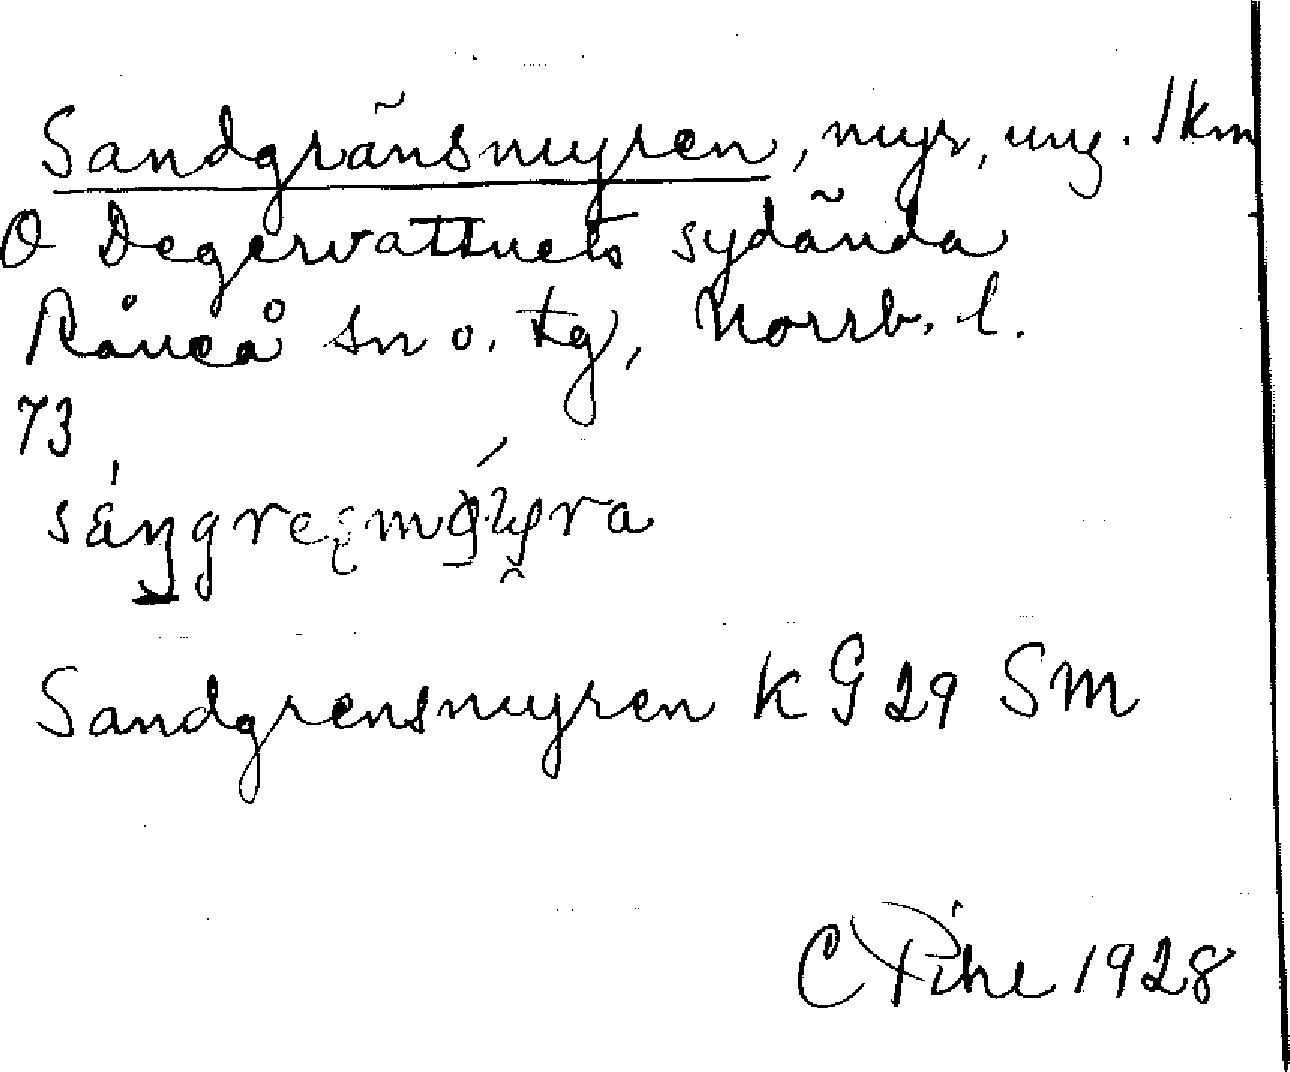 Sandgränsmyren, myr, ung. 1 km
O Degervattnets sydända
Råneå sn o. tg, Norrb. l.
73
Sandgrensmyren KG 29 SM
C Pihl 1928